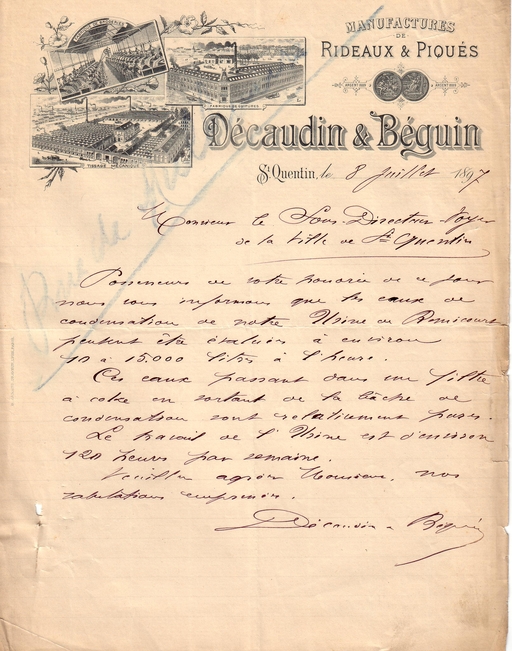 MANUFACTURES
DE
RIDEAUX & PIQUÉS
ARGENT 1889
ARGENT 1889
FABRIQUE DE GUIPURES
TISSAGE MÉCANIQUE
Décaudin & Béguin
St Quentin, le 8 Juillet 1897
Monsieur le Sous-Directeur Voyer
de la Ville de St Quentin
Possesseurs de votre honorée de ce jour
nous vous informons que les eaux de
condensation de notre Usine de Remicourt
peuvent être évaluées à environ
10 à 15,000 litres à l'heure.
Ces eaux passant dans un filtre
à coke en sortant de la bâche de
condensation sont relativement pures.
Le travail de l'Usine est d'environ
120 heures par semaine.
Veuillez agréer Monsieur, nos
salutations empressées.
Décaudin & Béguin
Rue de